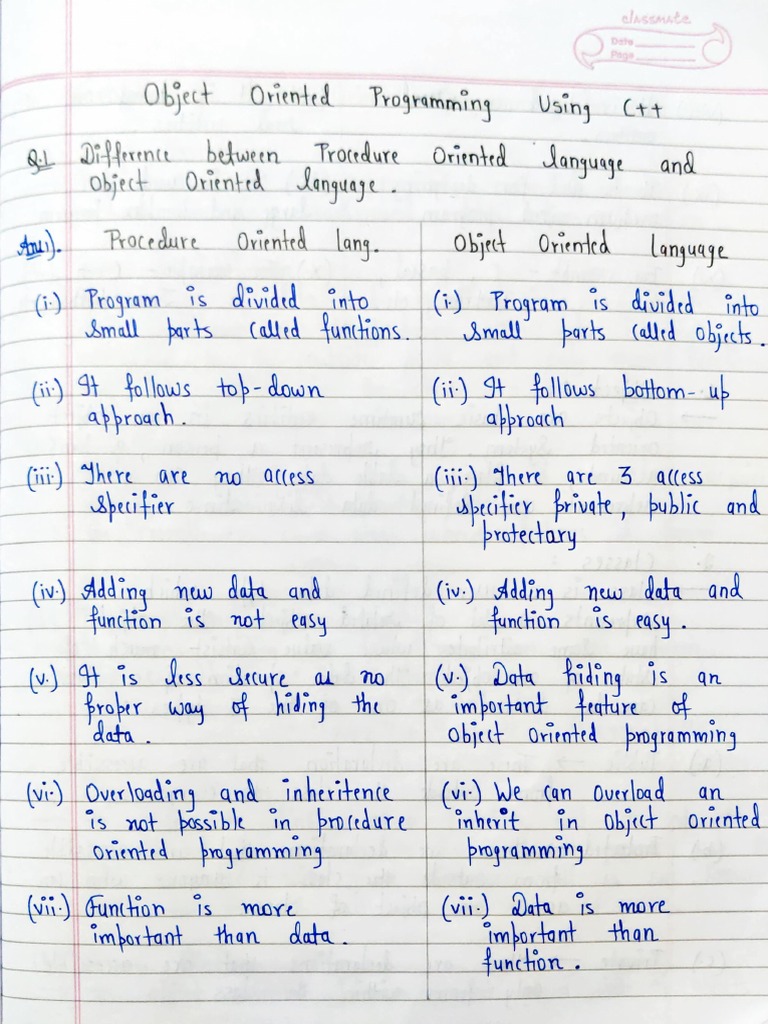 classmate
Date
Page
Object Oriented Programming Using C++
Q.1 Difference between Procedure Oriented language and
Object Oriented language.
Ans1).
Procedure Oriented Lang.
(i.) Program is divided into
small parts called functions.
(ii.) It follows top-down
approach.
(iii.) There are no access
specifier
(iv.) Adding new data and
function is not easy
(v.) It is less secure as no
proper way of hiding the
data.
(vi.) Overloading and inheritence
is not possible in procedure
oriented programming
(vii.) Function is more
important than data.
Object Oriented Language
(i.) Program is divided into
small parts called objects.
(ii.) It follows bottom-up
approach
(iii.) There are 3 access
specifier private, public and
protectary
(iv.) Adding new data and
function is easy.
(v.) Data hiding is an
important feature of
object oriented programming
(vi.) We can overload an
inherit in object oriented
programming
(vii.) Data is more
important than
function.